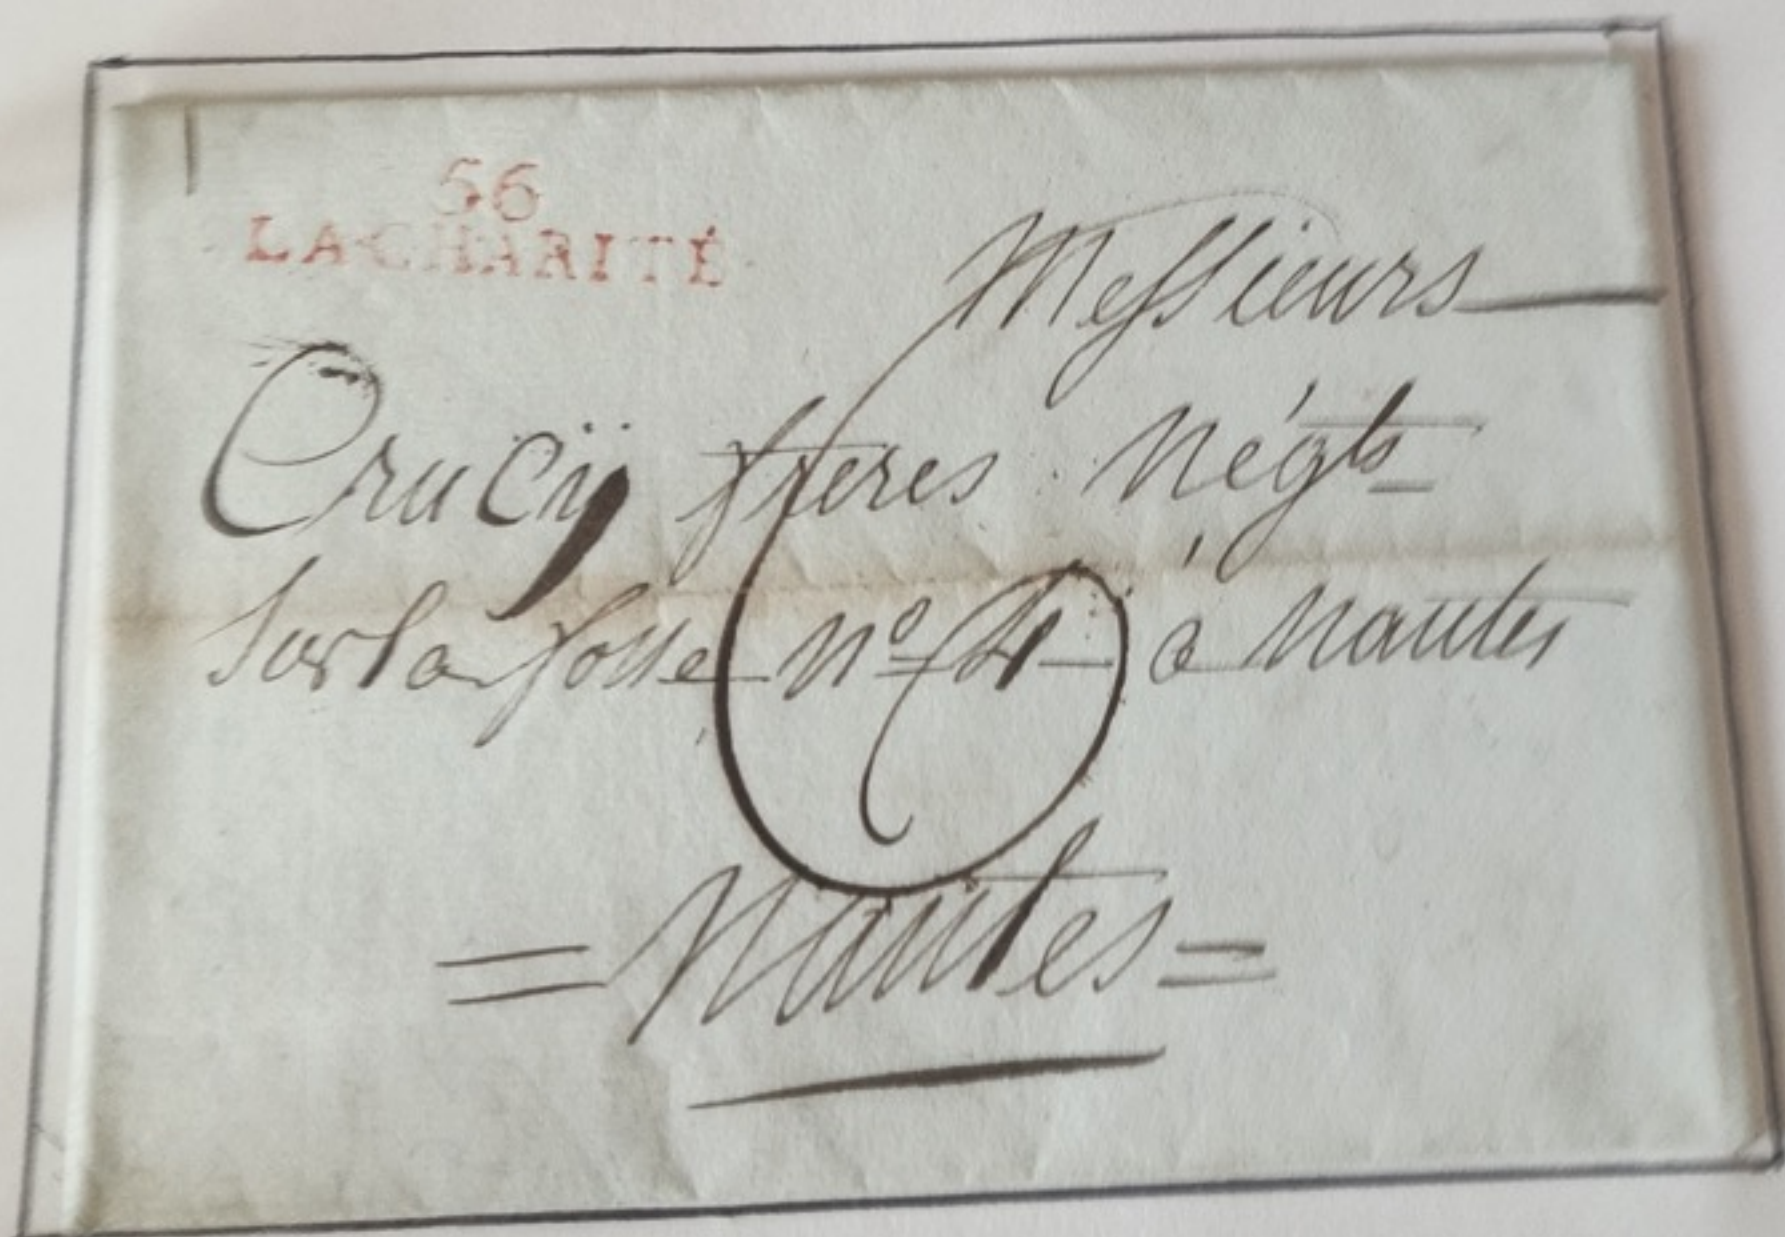 56
LA CHARITÉ
Messieurs
Crucÿ freres Négts
Sur la fosse N° à Nantes
6
Nantes